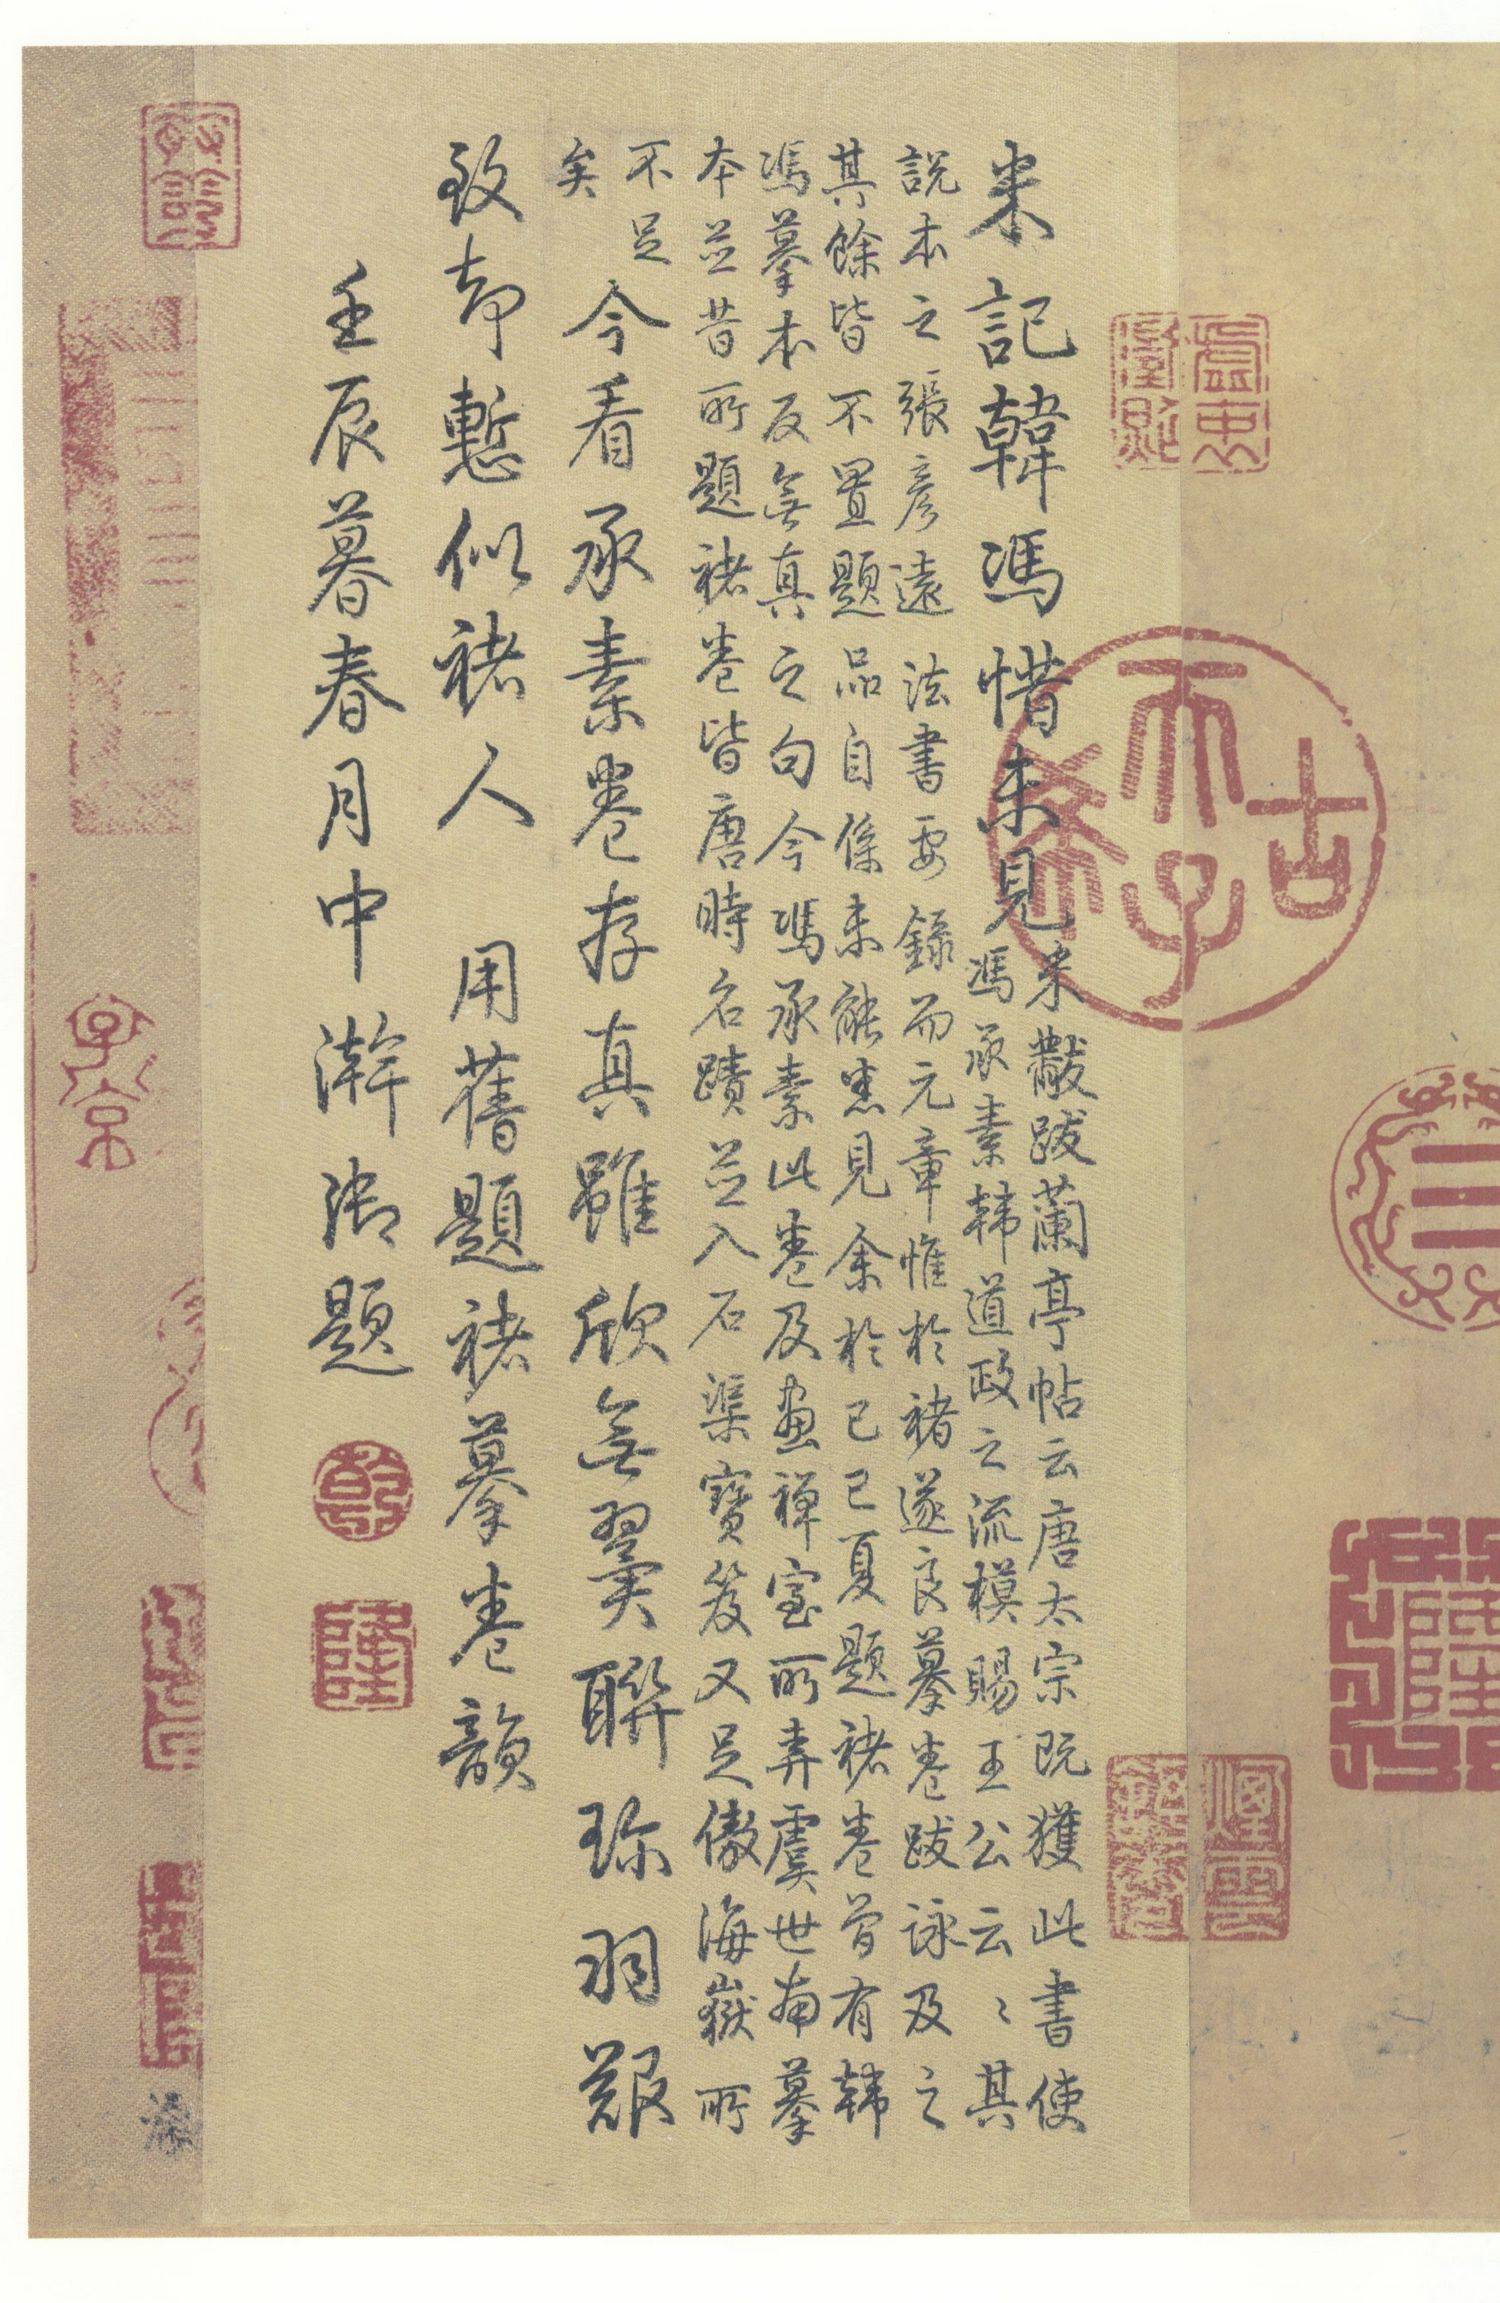 米記韓馮惜未見
米黻跋蘭亭帖云唐太宗既獲此書使
馮承素韓道政之流模賜王公云〻其
說本之張彥遠法書要錄而元章惟於褚遂良摹卷跋詠及之
其餘皆不置題品自係未能悉見余於己巳夏題褚卷曾有韓
馮摹本反無真之句今馮承素此卷及畫禪室所弆虞世南摹
本並昔所題褚卷皆唐時名蹟並入石渠寶笈又足傲海嶽所
不足
矣
今看承素卷存真雖欣無翼聯珎羽艱
致却慙似褚人 用舊題褚摹卷韻
壬辰暮春月中澣御題
乾
隆
古
希
天
子
子京